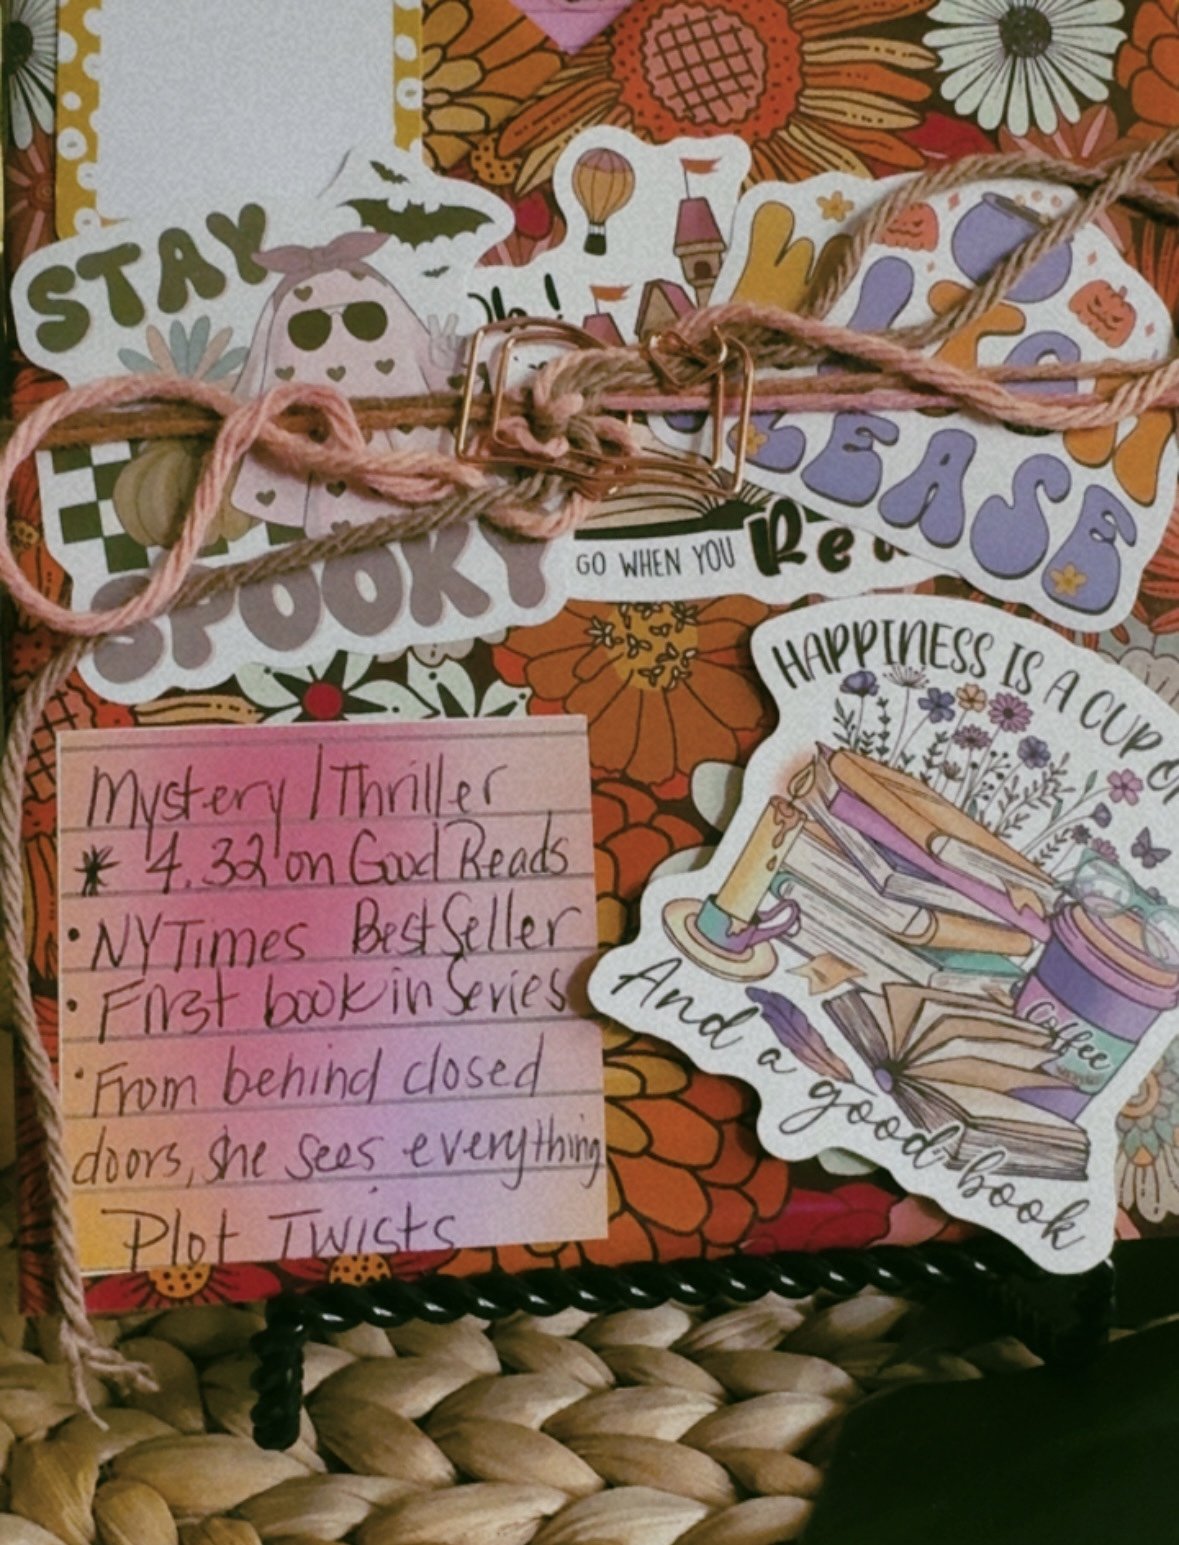 STAY
SPOOKY
Oh!
GO WHEN YOU
WITCH
PLEASE
HAPPINESS IS A CUP OF
Coffee
And a good book
Mystery/Thriller
* 4.32 on Good Reads
• NYTimes Best Seller
• First book in Series
• From behind closed
doors, she sees everything
Plot Twists